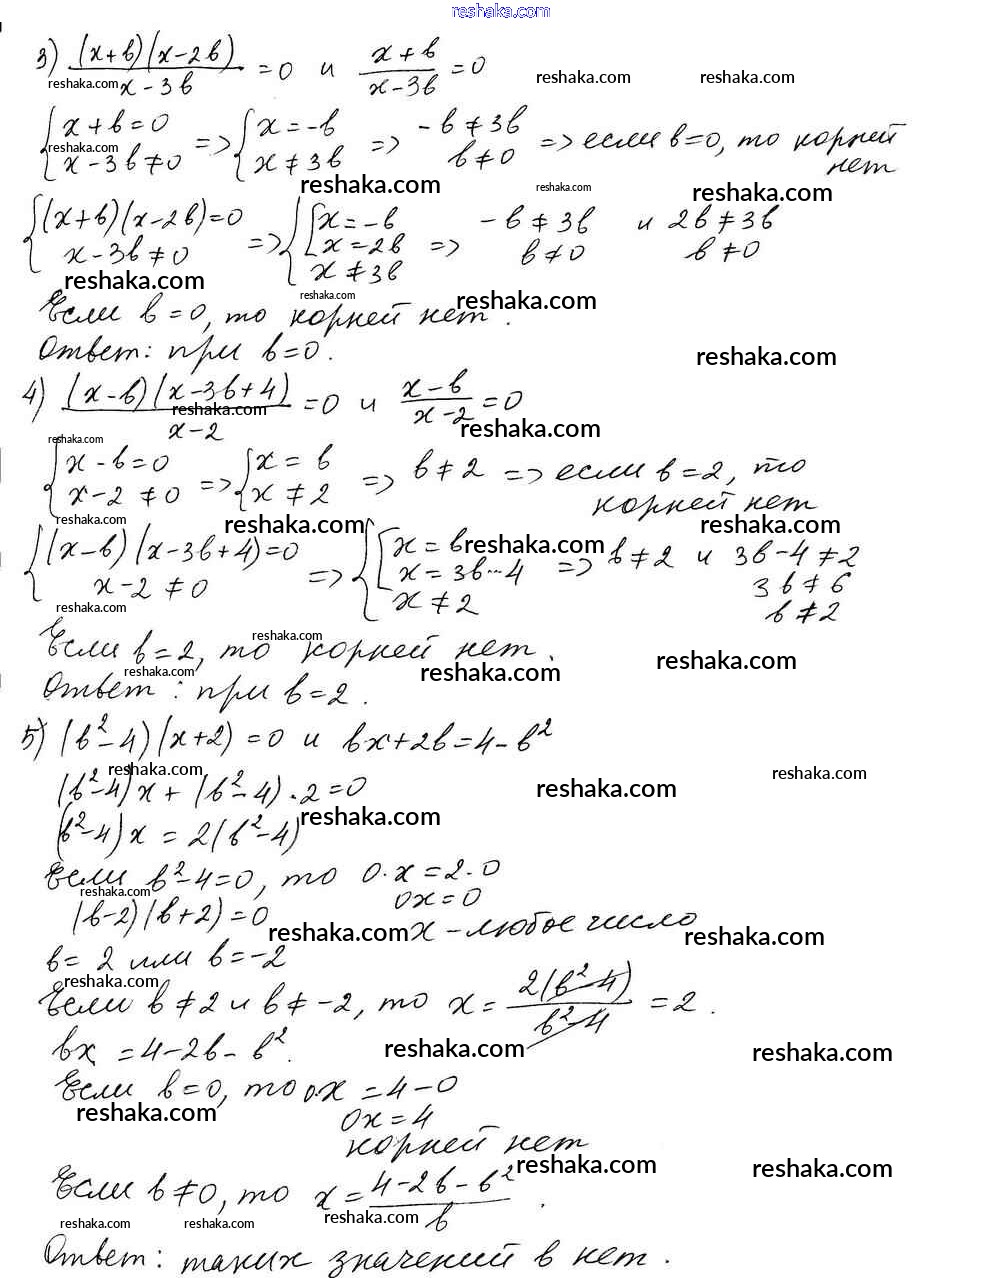 reshaka.com
3) (x+b)(x-2b) / x-3b = 0 и x+b / x-3b = 0
reshaka.com reshaka.com reshaka.com
{ x+b=0 x-3b≠0 => { x=-b x≠3b => -b≠3b b≠0 => если b=0, то корней нет
reshaka.com reshaka.com reshaka.com reshaka.com
{ (x+b)(x-2b)=0 x-3b≠0 => { [ x=-b x=2b x≠3b => -b≠3b b≠0 и 2b≠3b b≠0
reshaka.com reshaka.com reshaka.com
Если b=0, то корней нет.
Ответ: при b=0.
reshaka.com
4) (x-b)(x-3b+4) / x-2 = 0 и x-b / x-2 = 0
reshaka.com reshaka.com reshaka.com
{ x-b=0 x-2≠0 => { x=b x≠2 => b≠2 => если b=2, то корней нет
reshaka.com reshaka.com reshaka.com
{ (x-b)(x-3b+4)=0 x-2≠0 => { [ x=b x=3b-4 x≠2 => b≠2 и 3b-4≠2
3b≠6
b≠2
reshaka.com reshaka.com reshaka.com
Если b=2, то корней нет.
reshaka.com reshaka.com reshaka.com
Ответ: при b=2.
5) (b²-4)(x+2)=0 и bx+2b=4-b²
reshaka.com reshaka.com
(b²-4)x+(b²-4)·2=0
reshaka.com reshaka.com
(b²-4)x=2(b²-4)
Если b²-4=0, то 0·x=2·0
reshaka.com 0x=0
(b-2)(b+2)=0
reshaka.com x - любое число reshaka.com
b=2 или b=-2
reshaka.com
Если b≠2 и b≠-2, то x = 2(b²-4) / b²-4 = 2.
bx=4-2b-b².
reshaka.com reshaka.com
Если b=0, то 0·x=4-0
reshaka.com 0x=4
корней нет
reshaka.com reshaka.com
Если b≠0, то x = 4-2b-b² / b.
reshaka.com reshaka.com reshaka.com
Ответ: таких значений b нет.